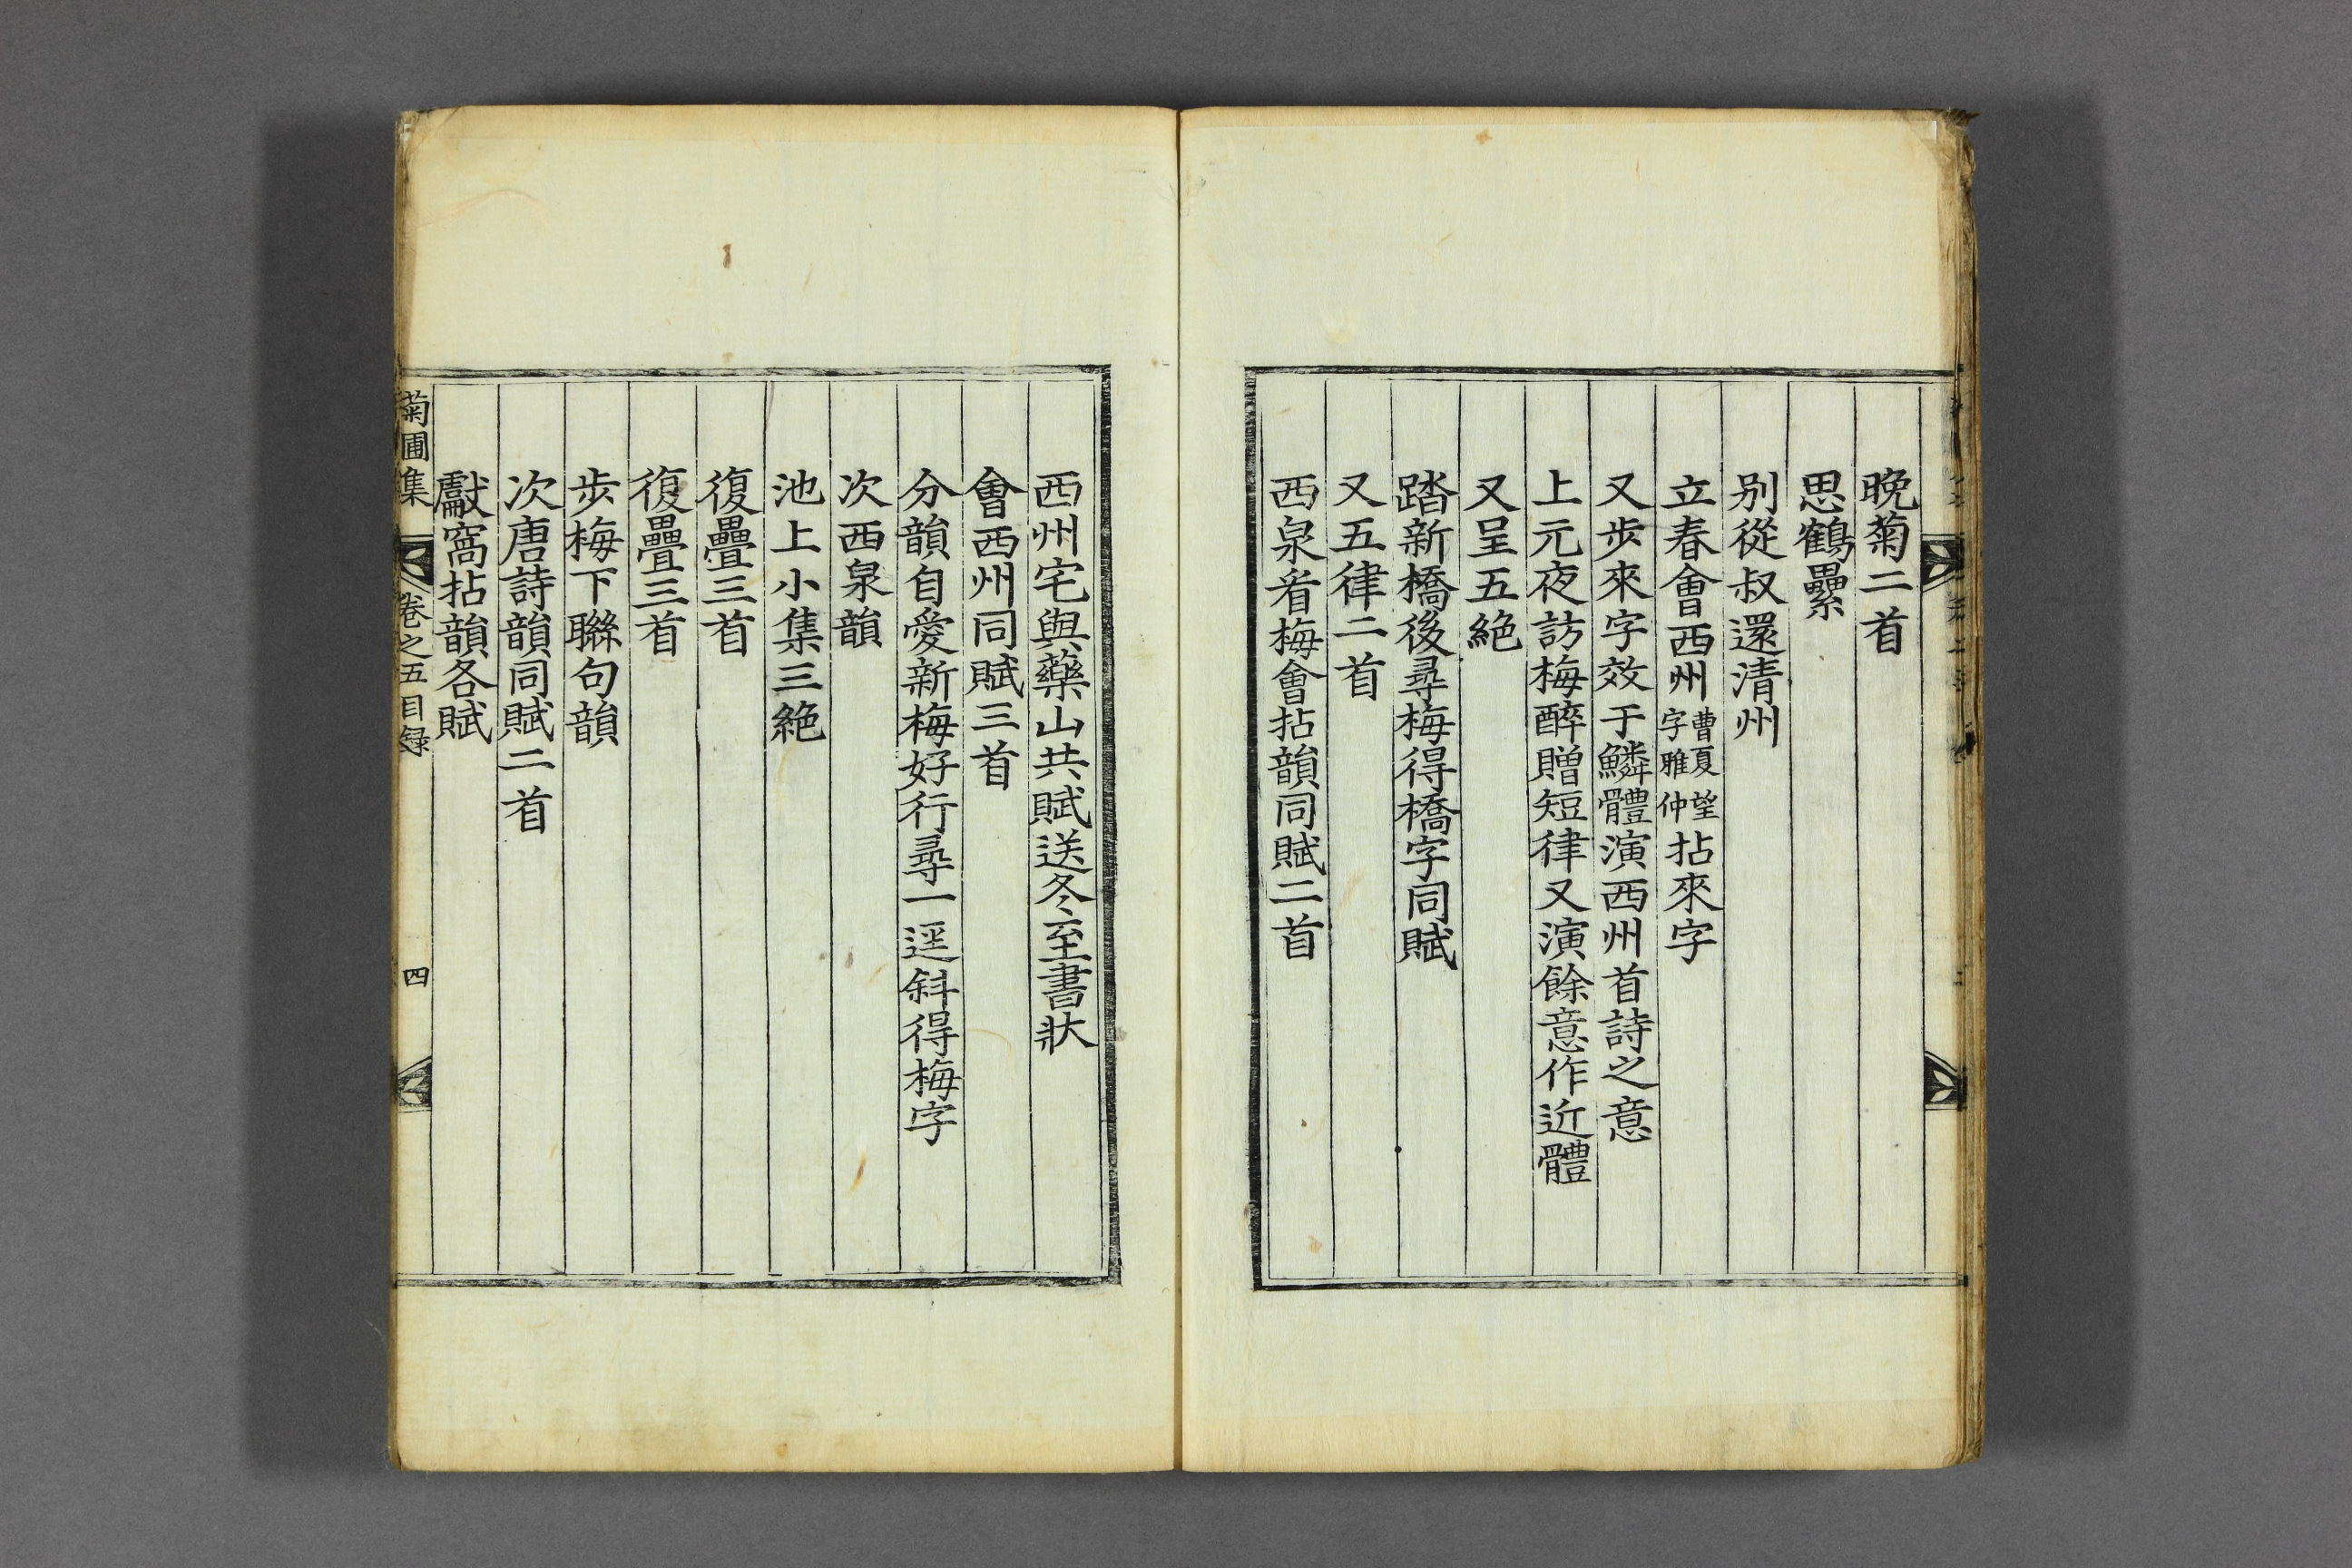 晩菊二首
思鶴壘
别從叔還清州
立春會西州曹夏望字雅仲拈來字
又步來字效于鱗體演西州首詩之意
上元夜訪梅醉贈短律又演餘意作近體
又呈五絶
踏新橋後尋梅得橋字同賦
又五律二首
西泉看梅會拈韻同賦二首
西州宅與藥山共賦送冬至書狀
會西州同賦三首
分韻自愛新梅好行尋一逕斜得梅字
次西泉韻
池上小集三絶
復疊三首
復疊三首
步梅下聯句韻
次唐詩韻同賦二首
獻窩拈韻各賦
菊圃集 卷之五目録 四